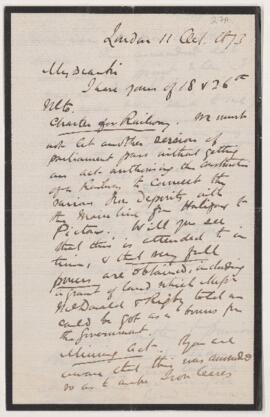 London 11 Oct. 1873
My dear Sir
I have yours of 18 & 26th
Ult.
Charter for Railway. We must
not let another session of
parliament pass without getting
an act authorising the construction
of a Railway to connect the
various Iron Deposits with
the Main line from Halifax to
Pictou. Will you see
that this is attended to in
time, & that very full
powers are obtained, including
a grant of land which Messrs
McDonald & Rigby told us
could be got as a bonus from
the Government.
Mining Act. You are
aware that this was amended
so as to make Iron leases